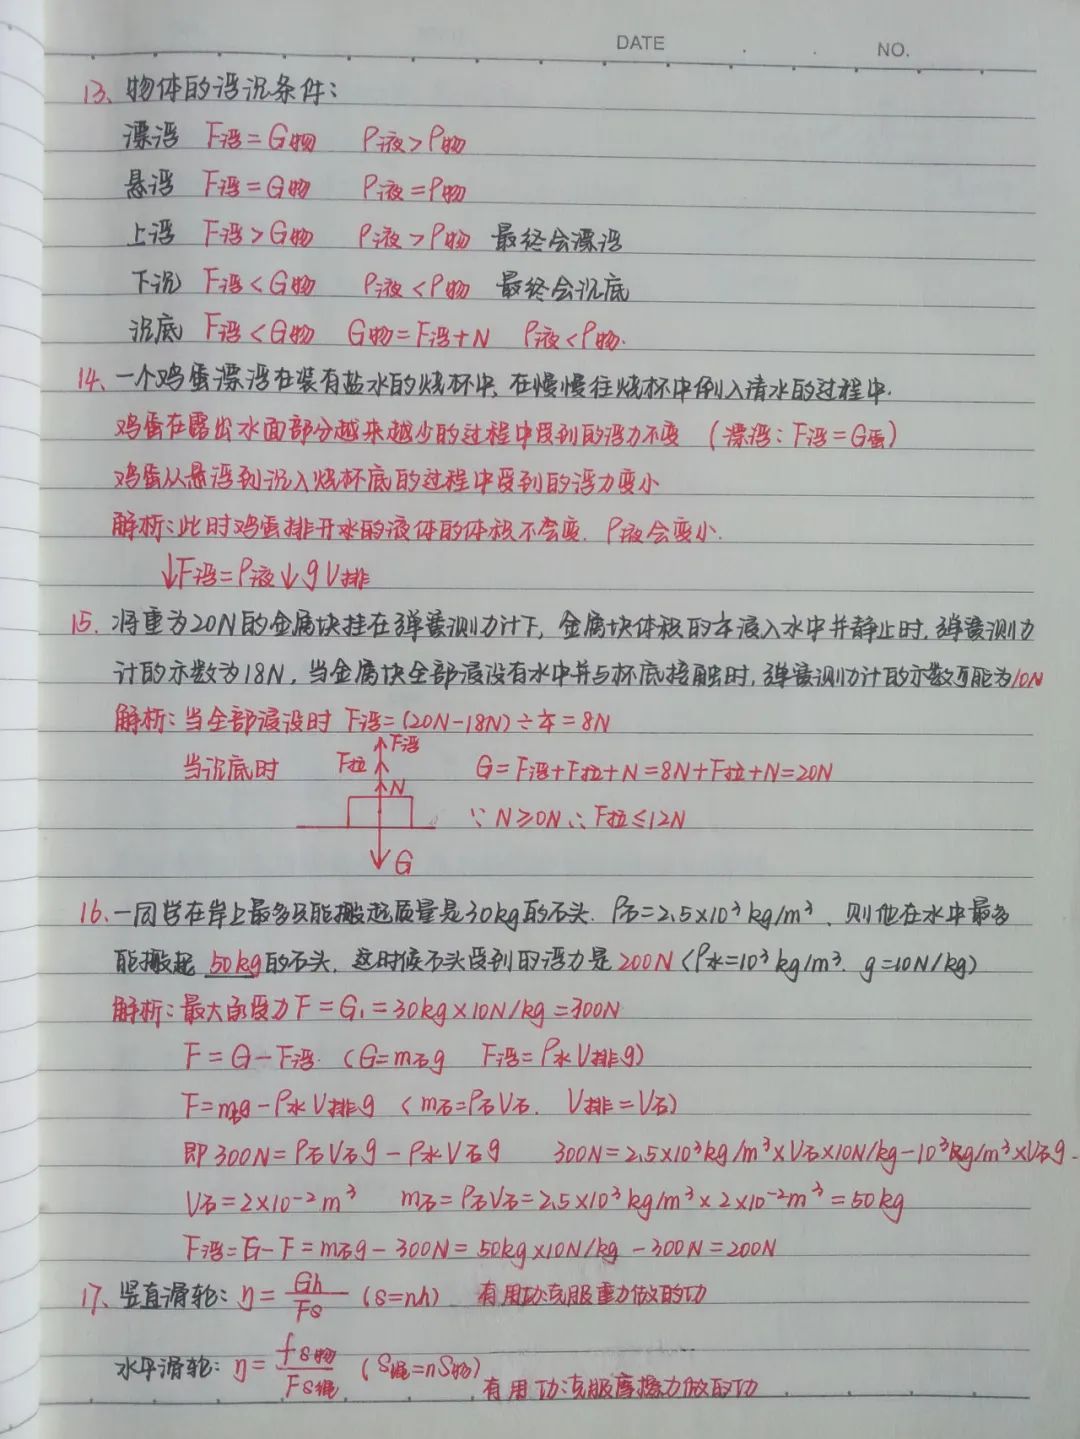 DATE
NO.
13、物体的浮沉条件:
漂浮 F浮=G物 ρ液>ρ物
悬浮 F浮=G物 ρ液=ρ物
上浮 F浮>G物 ρ液>ρ物 最终会漂浮
下沉 F浮<G物 ρ液<ρ物 最终会沉底
沉底 F浮<G物 G物=F浮+N ρ液<ρ物.
14、一个鸡蛋漂浮在装有盐水的烧杯中,在慢慢往烧杯中倒入清水的过程中.
鸡蛋在露出水面部分越来越少的过程中受到的浮力不变 (漂浮:F浮=G蛋)
鸡蛋从悬浮到沉入烧杯底的过程中受到的浮力变小
解析:此时鸡蛋排开水的液体的体积不会变.ρ液会变小.
↓F浮=ρ液↓gV排
15.将重为20N的金属块挂在弹簧测力计下,金属块体积的¼浸入水中并静止时,弹簧测力
计的示数为18N,当金属块全部浸没有水中并与杯底接触时,弹簧测力计的示数可能为10N
解析:当全部浸没时 F浮=(20N-18N)÷¼=8N
F浮
当沉底时 F拉 G=F浮+F拉+N=8N+F拉+N=20N
N
∵N≥0N∴F拉≤12N
G
16.一同学在岸上最多只能搬起质量是30kg的石头.ρ石=2.5×10³kg/m³,则他在水中最多
能搬起 50kg的石头,这时候石头受到的浮力是200N(ρ水=10³kg/m³.g=10N/kg)
解析:最大承受力F=G₁=30kg×10N/kg=300N
F=G-F浮.(G=m石g F浮=ρ水V排g)
F=m石g-ρ水V排g (m石=ρ石V石.V排=V石)
即300N=ρ石V石g-ρ水V石g 300N=2.5×10³kg/m³×V石×10N/kg-10³kg/m³×V石g.
V石=2×10⁻²m³ m石=ρ石V石=2.5×10³kg/m³×2×10⁻²m³=50kg
F浮=G-F=m石g-300N=50kg×10N/kg-300N=200N
17、竖直滑轮:η=Gh/Fs (s=nh) 有用功克服重力做的功
水平滑轮:η=fs物/Fs绳 (S绳=nS物) 有用功克服摩擦力做的功